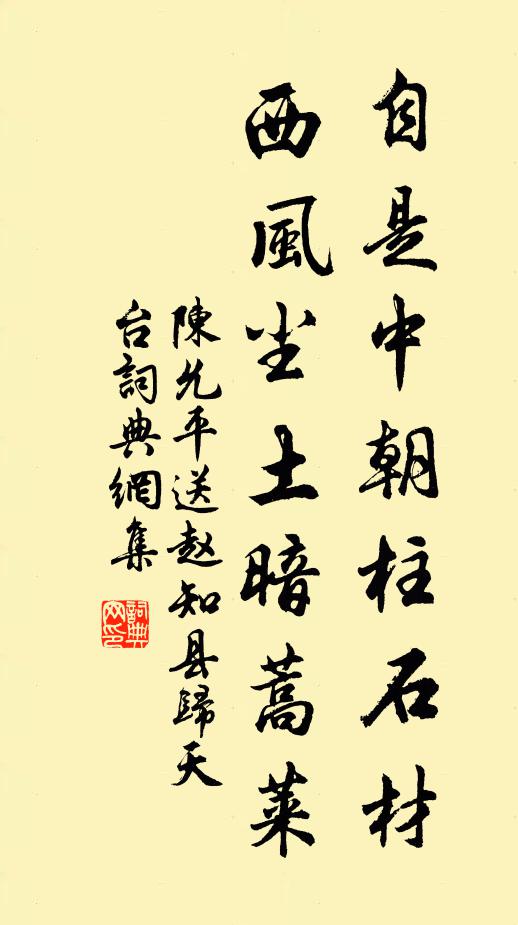 自是中朝柱石材
西風尘土暗蒿莱
陳允平送赵知县歸天
台詞典網集
詞典网印